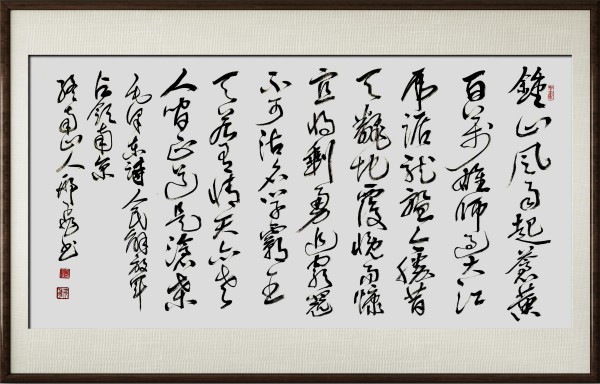 鍾山風雨起蒼黃
百萬雄師過大江
虎踞龍盤今勝昔
天翻地覆慨而慷
宜將剩勇追窮寇
不可沽名學霸王
天若有情天亦老
人間正道是滄桑
毛澤東詩人民解放軍
占領南京
終南山人邢書